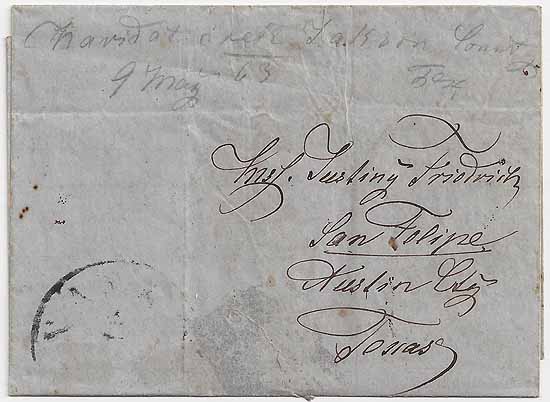 Navidat creek Jakson County
9 May 63 Tex
Friedrich
San Felipe
Austin Cty
Texas